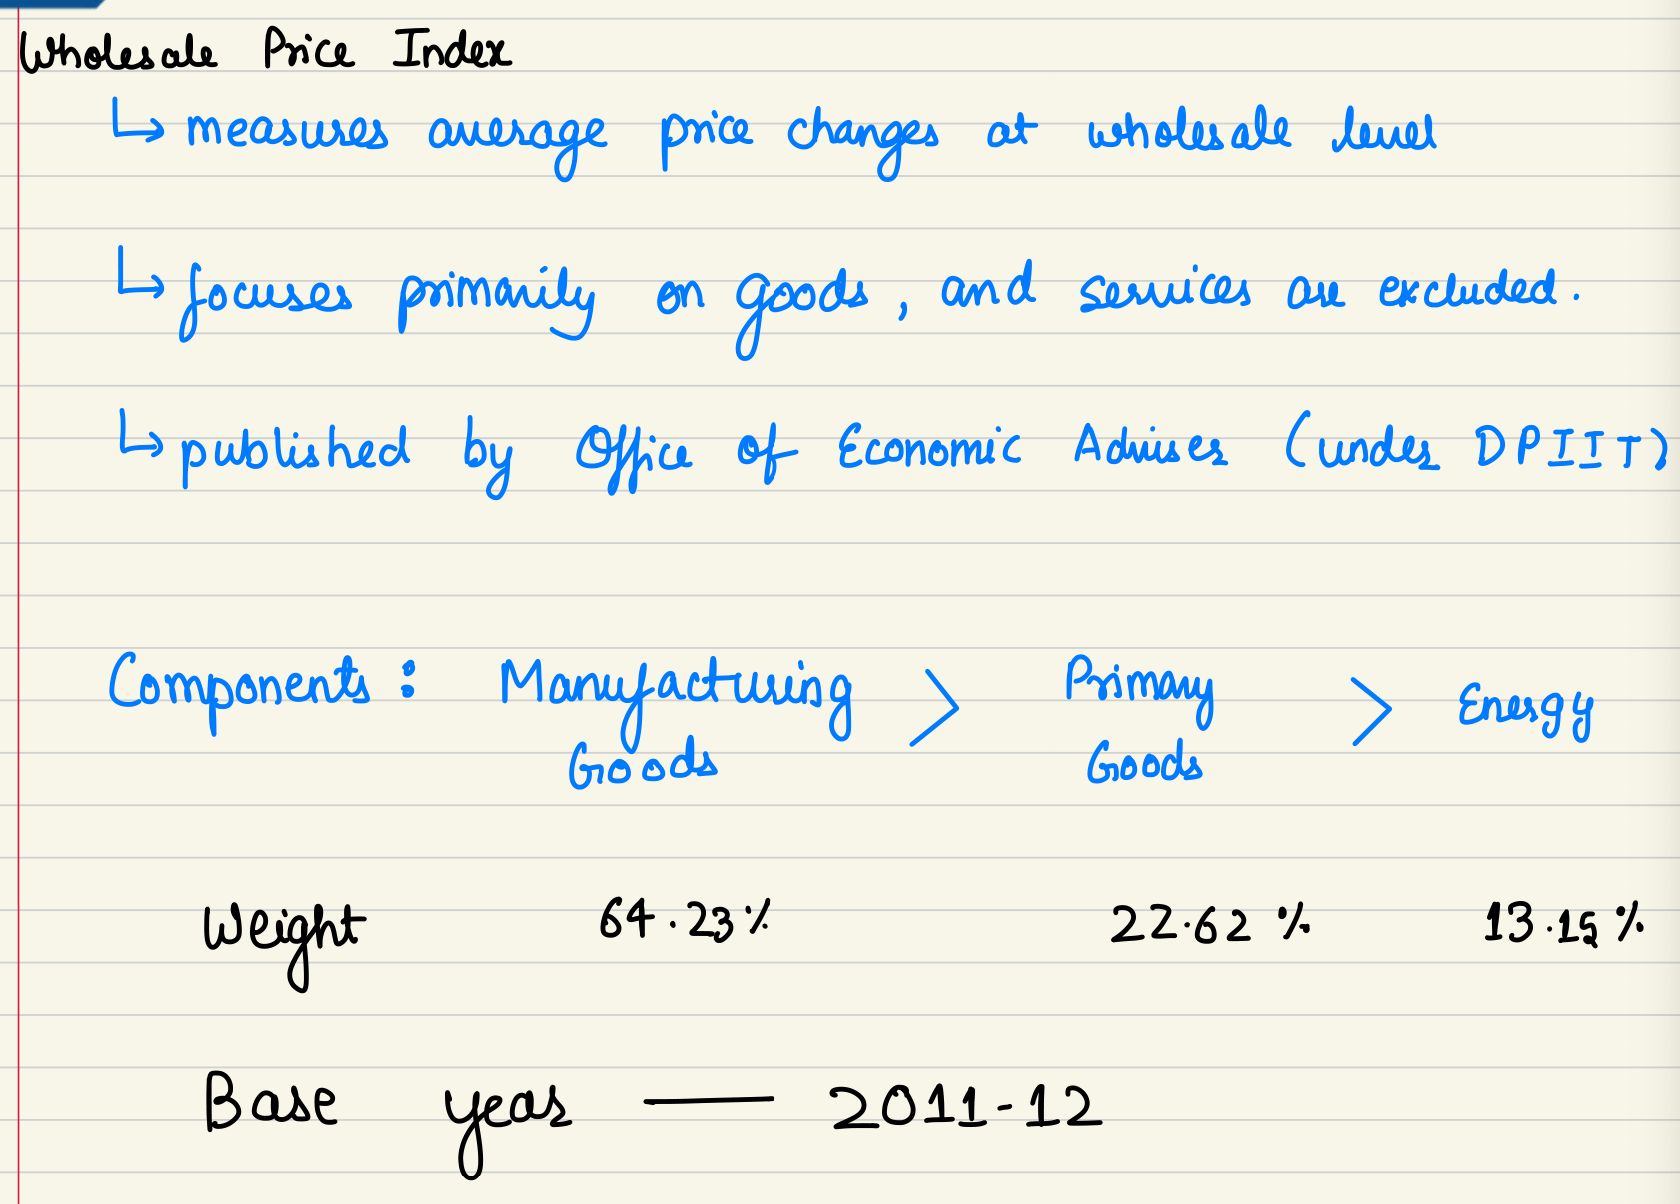 Wholesale Price Index
↳ measures average price changes at wholesale level
↳ focuses primarily on goods, and services are excluded.
↳ published by Office of Economic Adviser (under DPIIT)
Components : Manufacturing Goods > Primary Goods > Energy
Weight 64.23% 22.62% 13.15%
Base year — 2011-12